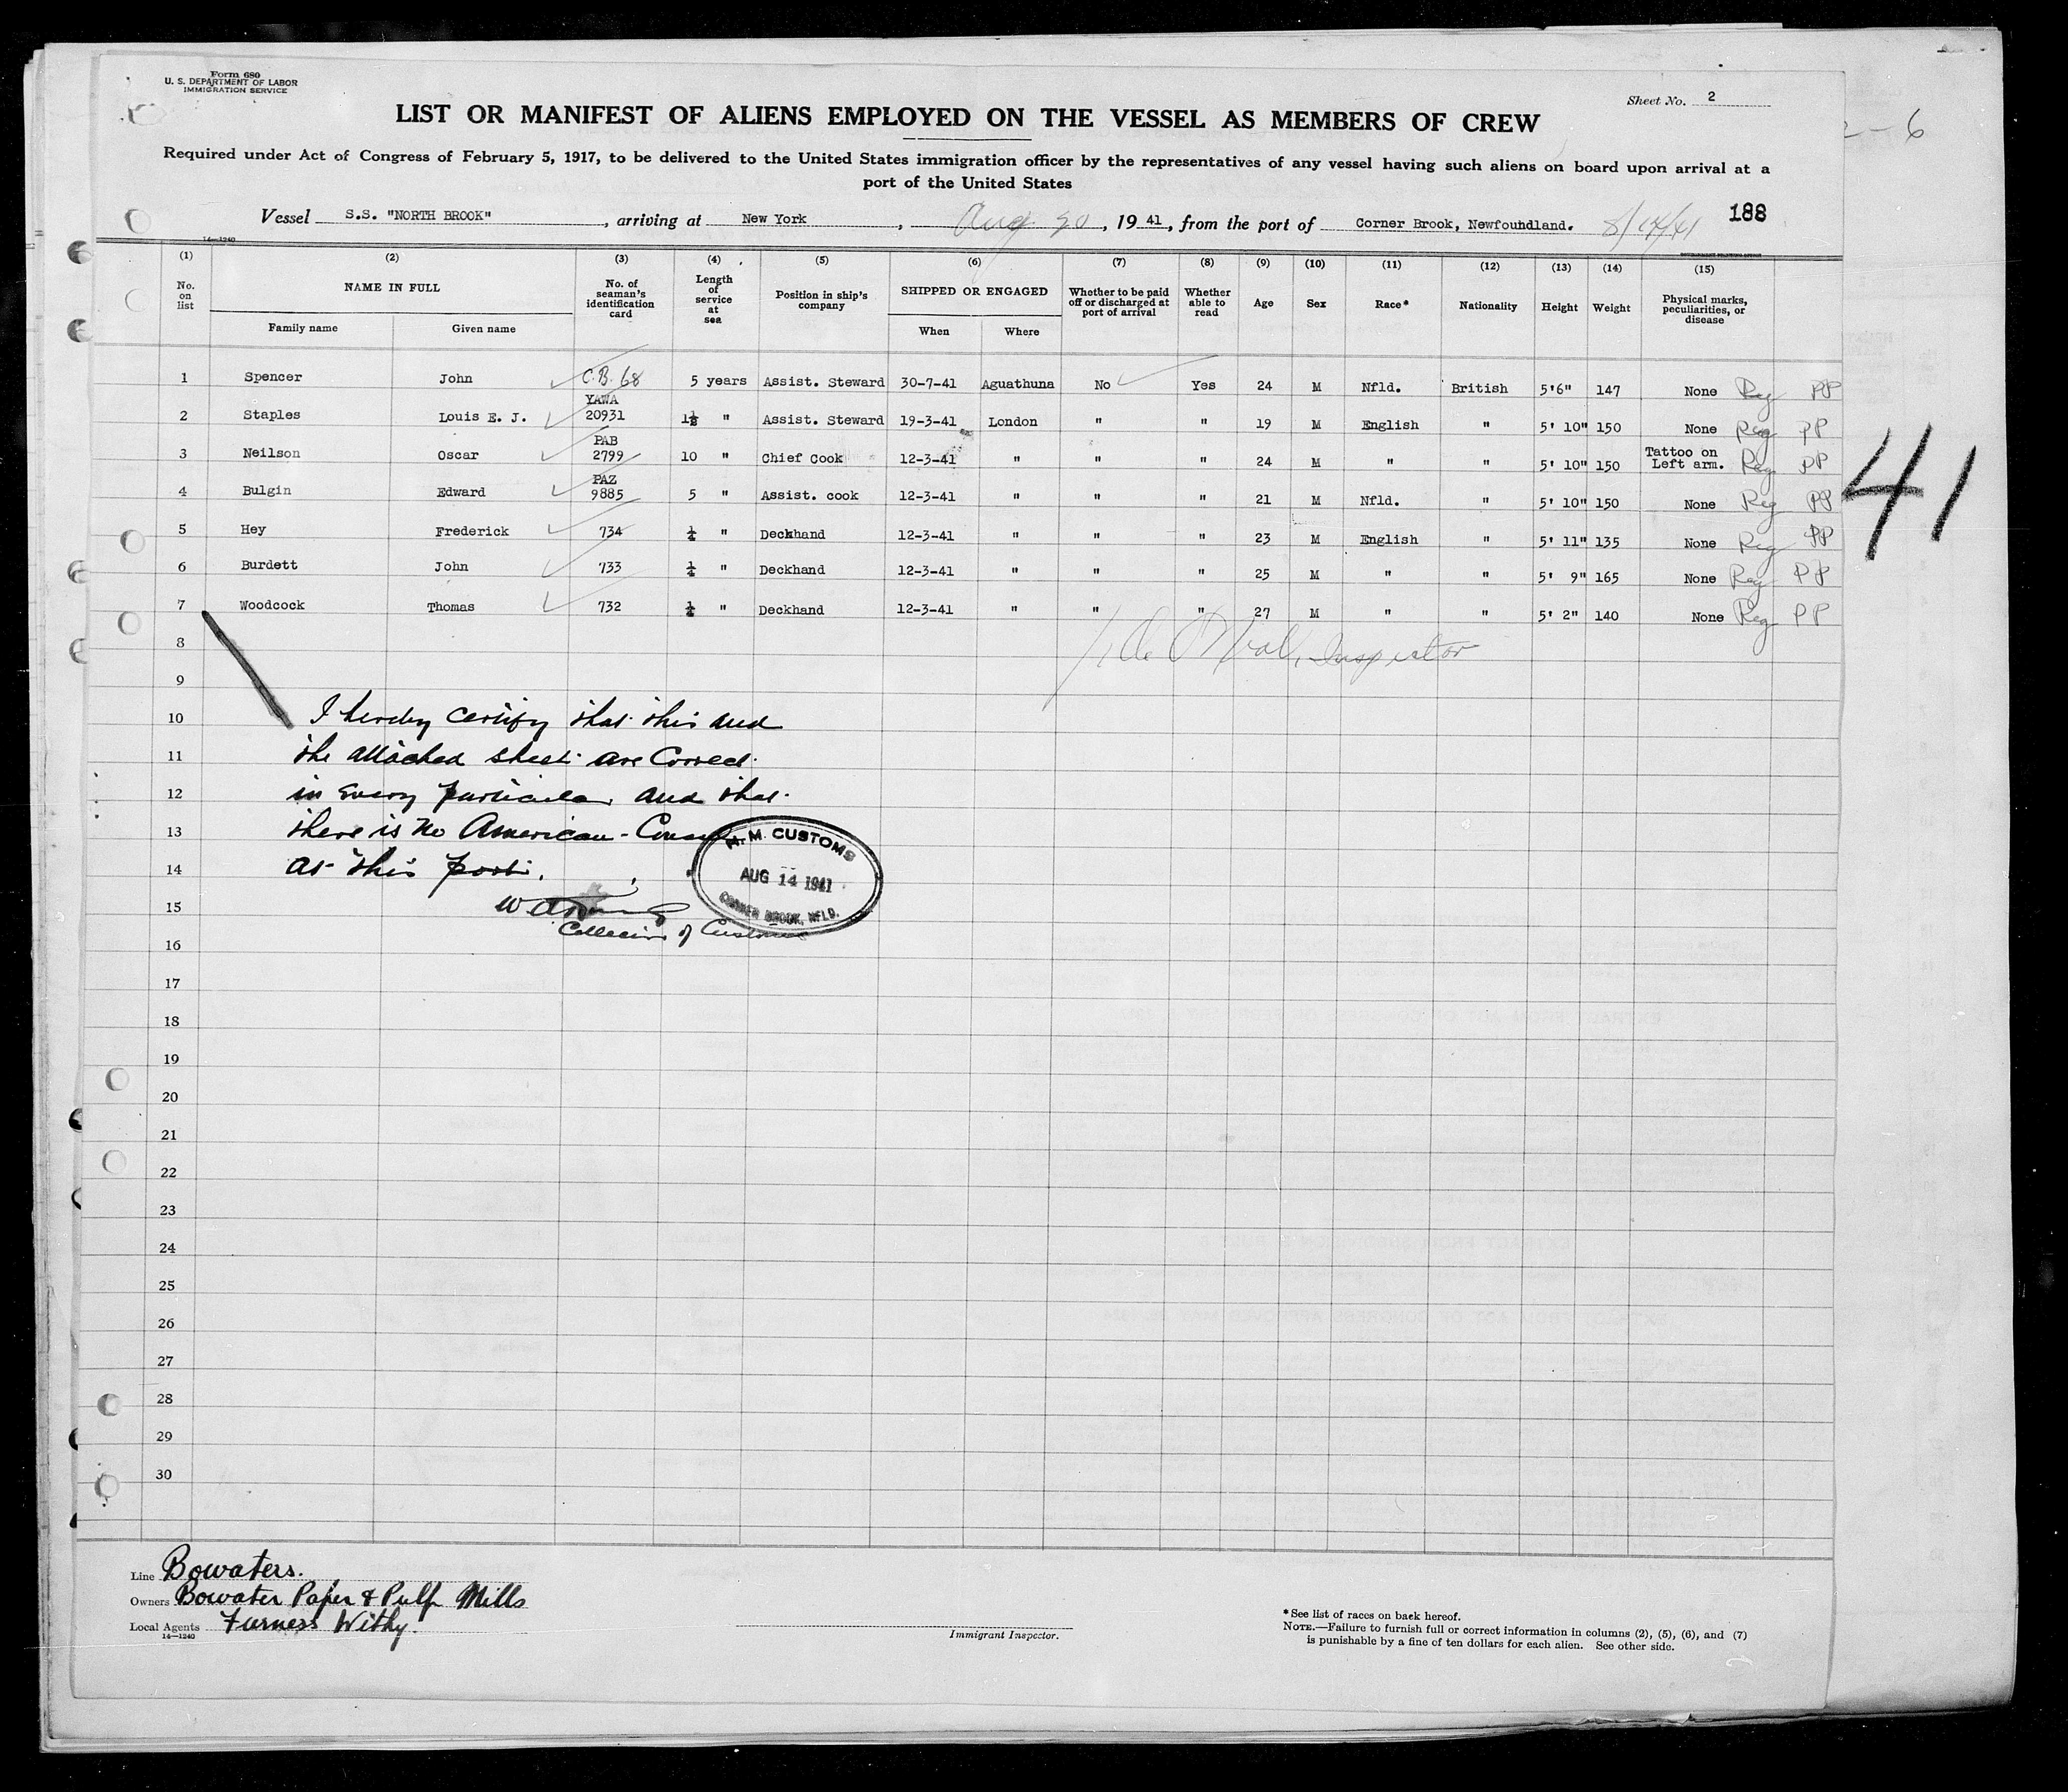 Form 680
U. S. DEPARTMENT OF LABOR
IMMIGRATION SERVICE
Sheet No. 2
LIST OR MANIFEST OF ALIENS EMPLOYED ON THE VESSEL AS MEMBERS OF CREW
2-6
Required under Act of Congress of February 5, 1917, to be delivered to the United States immigration officer by the representatives of any vessel having such aliens on board upon arrival at a
port of the United States
Vessel S.S. "NORTH BROOK", arriving at New York, Aug 20, 1941, from the port of Corner Brook, Newfoundland. 8/14/41 188
14-1240
(1) (2) (3) (4) (5) (6) (7) (8) (9) (10) (11) (12) (13) (14) (15)
No. on list NAME IN FULL No. of seaman's identification card Length of service at sea Position in ship's company SHIPPED OR ENGAGED Whether to be paid off or discharged at port of arrival Whether able to read Age Sex Race* Nationality Height Weight Physical marks, peculiarities, or disease
Family name Given name When Where
1 Spencer John C.B. 68 5 years Assist. Steward 30-7-41 Aguathuna No Yes 24 M Nfld. British 5'6" 147 None Reg PP
2 Staples Louis E. J. YAWA 20931 1½ " Assist. Steward 19-3-41 London " " 19 M English " 5' 10" 150 None Reg PP
3 Neilson Oscar PAB 2799 10 " Chief Cook 12-3-41 " " " 24 M " " 5' 10" 150 Tattoo on Left arm. Reg PP
4 Bulgin Edward PAZ 9885 5 " Assist. cook 12-3-41 " " " 21 M Nfld. " 5' 10" 150 None Reg PP
5 Hey Frederick 734 " Deckhand 12-3-41 " " " 23 M English " 5' 11" 135 None Reg PP
6 Burdett John 733 " Deckhand 12-3-41 " " " 25 M " " 5' 9" 165 None Reg PP
7 Woodcock Thomas 732 " Deckhand 12-3-41 " " " 27 M " " 5' 2" 140 None Reg PP
41
8 Inspector
9
10 I hereby certify that this and
11 the attached sheet are Correct
12 in Every particular and that
13 there is no American-Consul
14 at this port.
15
Collector of Customs
H. M. CUSTOMS
AUG 14 1941
CORNER BROOK, NFLD.
16
17
18
19
20
21
22
23
24
25
26
27
28
29
30
Line Bowaters.
Owners Bowater Paper & Pulp Mills
Local Agents Furness Withy.
14-1240
Immigrant Inspector.
*See list of races on back hereof.
NOTE.—Failure to furnish full or correct information in columns (2), (5), (6), and (7)
is punishable by a fine of ten dollars for each alien. See other side.